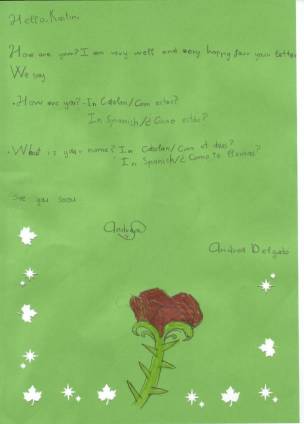 Hello,
How are you? I am very well and very happy for your letter
We say
• How are you? - In Catalan/Com estas?
In Spanish/¿Como estas?
• What is your name? In Catalan/Com et dius?
In Spanish/¿Como te llamas?
See you soon
Andrea
Andrea Delgado